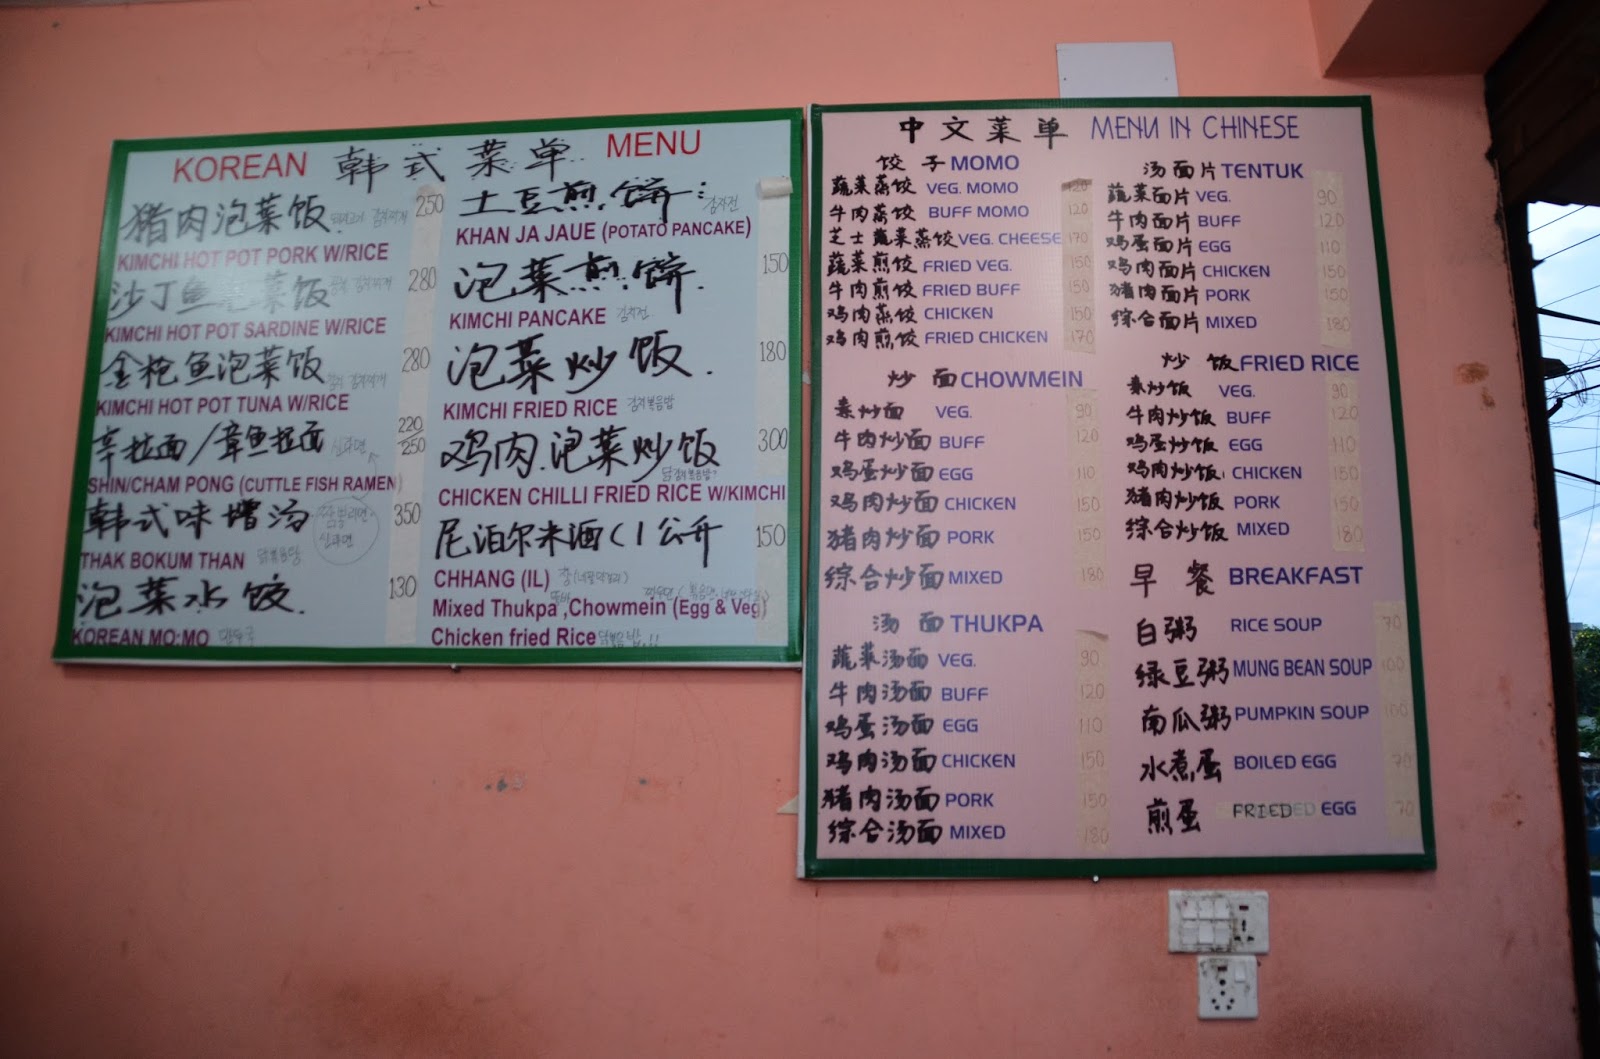 KOREAN 韩式菜单 MENU
猪肉泡菜饭 250
KIMCHI HOT POT PORK W/RICE
沙丁鱼泡菜饭 280
KIMCHI HOT POT SARDINE W/RICE
金枪鱼泡菜饭 280
KIMCHI HOT POT TUNA W/RICE
辛拉面/章鱼拉面 신라면 220/250
SHIN/CHAM PONG (CUTTLE FISH RAMEN)
韩式味增汤 신라면 350
THAK BOKUM THAN
泡菜水饺 130
KOREAN MO:MO
土豆煎饼: 감자전
KHAN JA JAUE (POTATO PANCAKE)
泡菜煎饼 150
KIMCHI PANCAKE 김치전
泡菜炒饭 180
KIMCHI FRIED RICE 김치볶음밥
鸡肉泡菜炒饭 300
CHICKEN CHILLI FRIED RICE W/KIMCHI
尼泊尔米酒(1公升 150
CHHANG (IL)
Mixed Thukpa ,Chowmein (Egg & Veg)
Chicken fried Rice
中文菜单 MENU IN CHINESE
饺子 MOMO
蔬菜蒸饺 VEG. MOMO 120
牛肉蒸饺 BUFF MOMO 120
芝士蔬菜蒸饺 VEG. CHEESE 170
蔬菜煎饺 FRIED VEG. 150
牛肉煎饺 FRIED BUFF 150
鸡肉蒸饺 CHICKEN 150
鸡肉煎饺 FRIED CHICKEN 170
炒面 CHOWMEIN
素炒面 VEG. 90
牛肉炒面 BUFF 120
鸡蛋炒面 EGG 110
鸡肉炒面 CHICKEN 150
猪肉炒面 PORK 150
综合炒面 MIXED 180
汤面 THUKPA
蔬菜汤面 VEG. 90
牛肉汤面 BUFF 120
鸡蛋汤面 EGG 110
鸡肉汤面 CHICKEN 150
猪肉汤面 PORK 150
综合汤面 MIXED 180
汤面片 TENTUK
蔬菜面片 VEG. 90
牛肉面片 BUFF 120
鸡蛋面片 EGG 110
鸡肉面片 CHICKEN 150
猪肉面片 PORK 150
综合面片 MIXED 180
炒饭 FRIED RICE
素炒饭 VEG. 90
牛肉炒饭 BUFF 120
鸡蛋炒饭 EGG 110
鸡肉炒饭 CHICKEN 150
猪肉炒饭 PORK 150
综合炒饭 MIXED 180
早餐 BREAKFAST
白粥 RICE SOUP 70
绿豆粥 MUNG BEAN SOUP 100
南瓜粥 PUMPKIN SOUP 100
水煮蛋 BOILED EGG 70
煎蛋 FRIED EGG 70